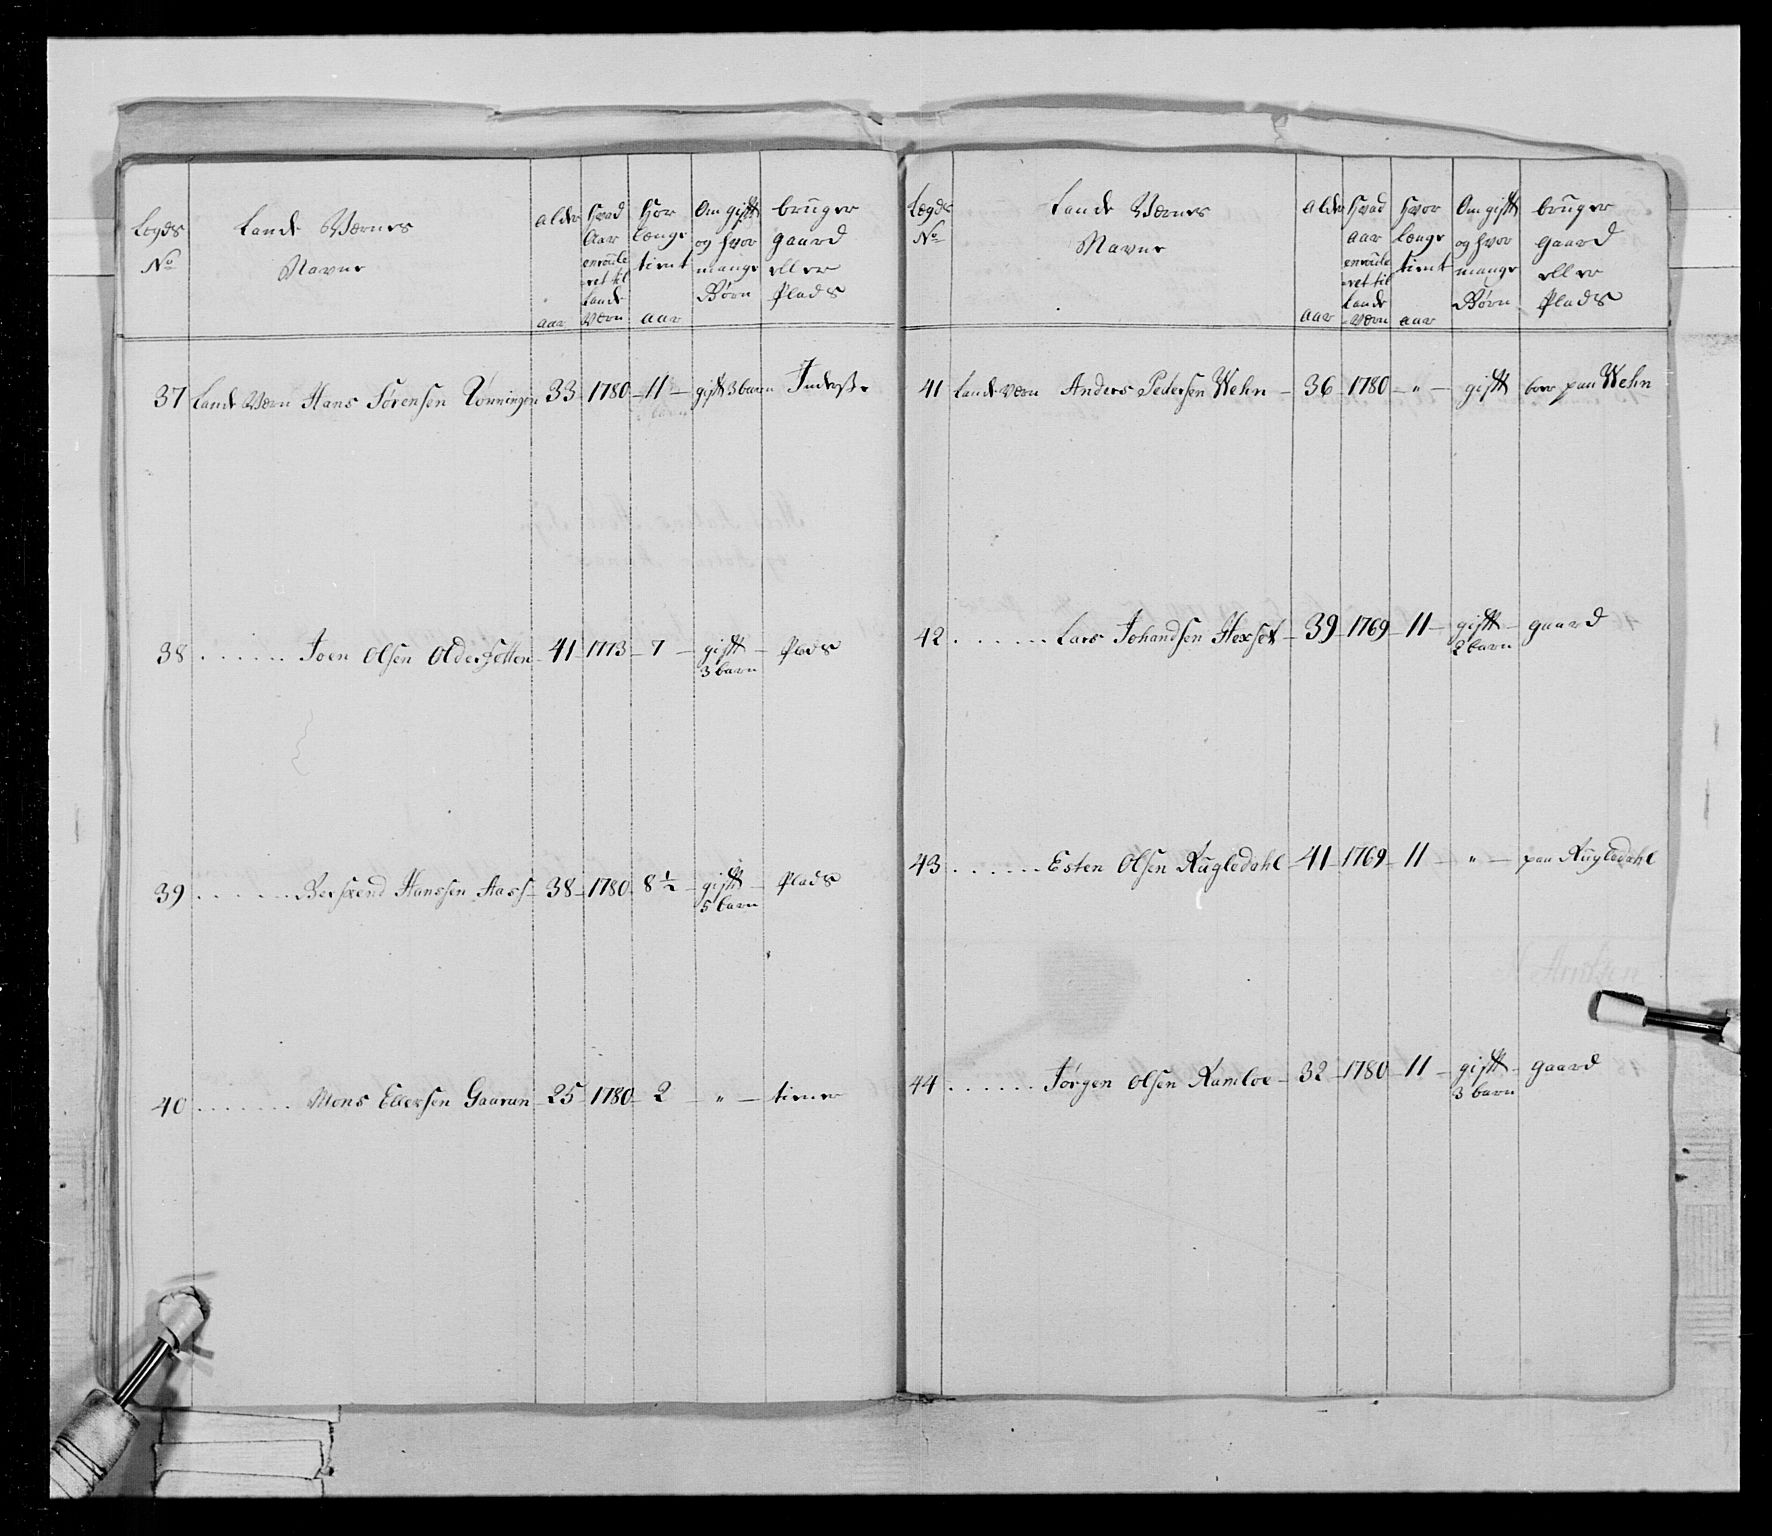 Legds No
Lande Værnes Navne
alder aar
Hvad Aar enroûle-ret til Lande Værn
Hor længe tient aar
Om gift og hvor mange Børn
brûger gaard eller Plads
37 Lande Værn Hans Sörensen Rönningen 33 1780 11 gift 3 barn Inderst.
38 . . . . . . Joen Olsen 41 1773 7 gift 3 barn Plads
39 . . . . . Hanssen Aass 38 1780 8 1/2 gift 5 barn Plads
40 . . . . . . . Mons Ellersen 25 1780 2 " tiener
Lægds No
Lande Værnes Navne
alder aar
Hvad aar enroûle-ret til Lande Værn
Hvor længe tient aar
Om gift og hvor mange Børn
brûger gaard eller Plads
41 Lande Værn Anders Pedersen Wehn 36 1780 " gift boer paa Wehn
42 . . . . . . Lars Johandsen 39 1769 11 gift 2 barn gaard
43 . . . . . . Esten Olsen Kûgledahl 41 1769 11 " paa Kûgledahl
44 . . . . . . Jörgen Olsen Ramloe 32 1780 11 gift 3 barn gaard